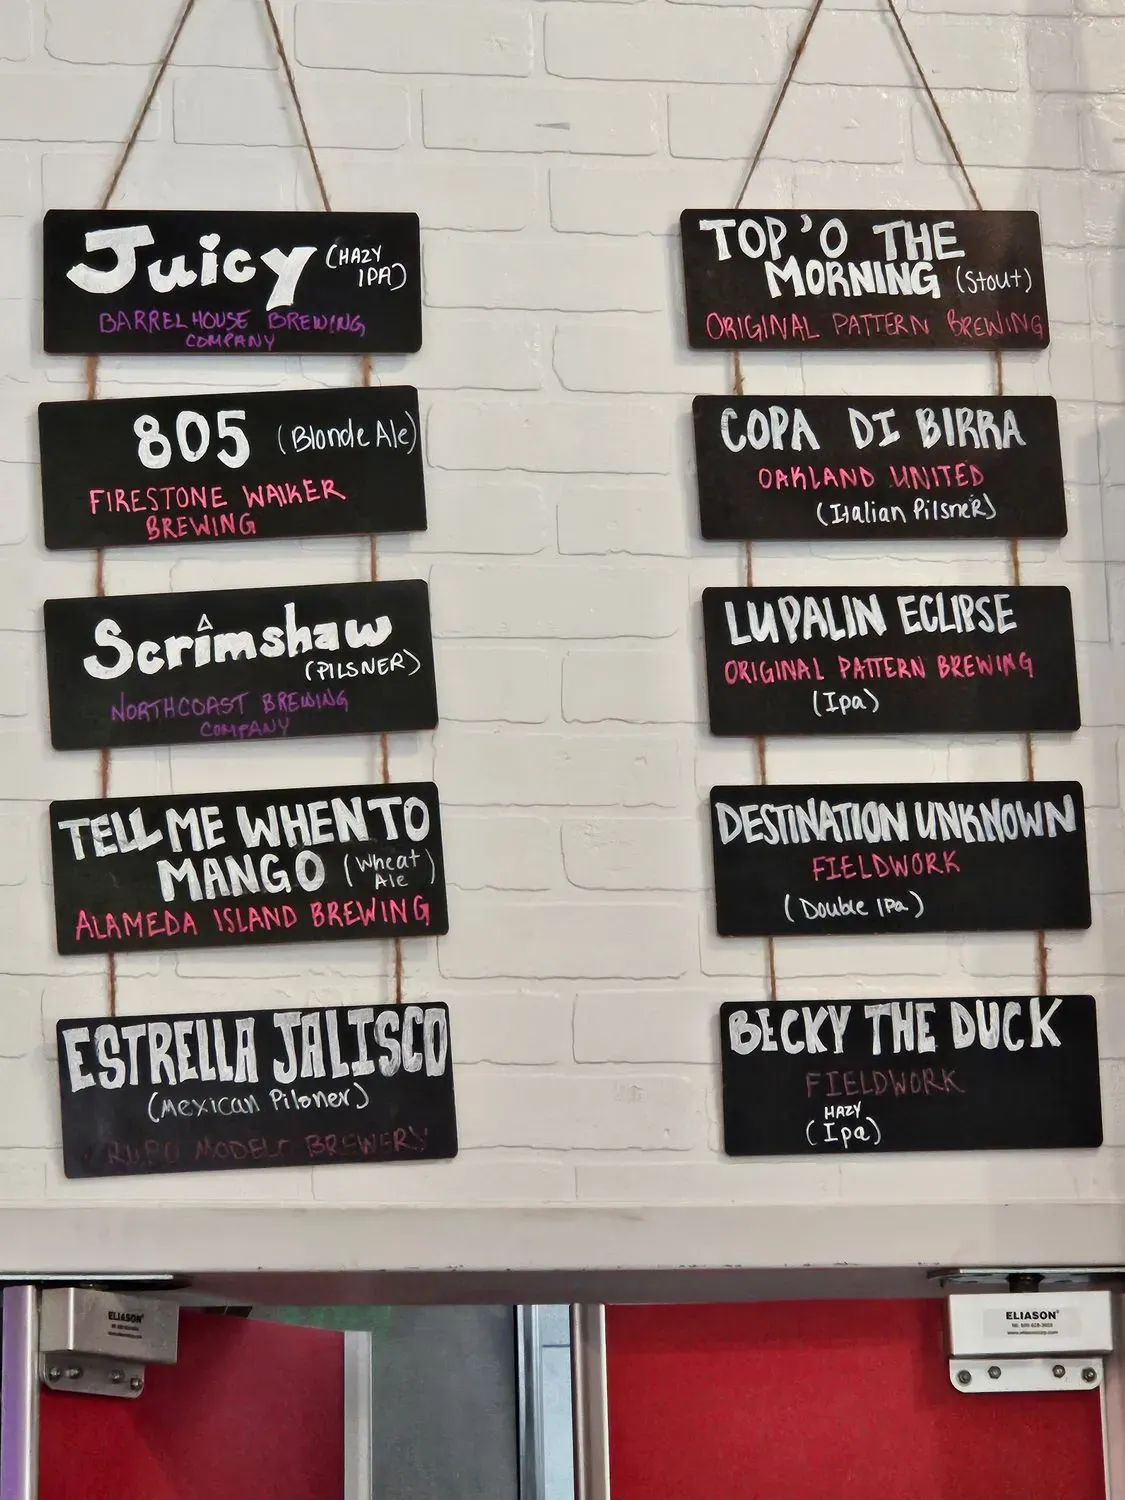 Juicy (HAZY
IPA)
BARRELHOUSE BREWING
COMPANY
805 (Blonde Ale)
FIRESTONE WALKER
BREWING
Scrimshaw
(PILSNER)
NORTHCOAST BREWING
COMPANY
TELL ME WHEN TO
MANGO (Wheat
Ale)
ALAMEDA ISLAND BREWING
ESTRELLA JALISCO
(Mexican Pilsner)
MODELO BREWERY
TOP'O THE
MORNING (Stout)
ORIGINAL PATTERN BREWING
COPA DI BIRRA
OAKLAND UNITED
(Italian Pilsner)
LUPALIN ECLIPSE
ORIGINAL PATTERN BREWING
(Ipa)
DESTINATION UNKNOWN
FIELDWORK
(Double IPa)
BECKY THE DUCK
FIELDWORK
HAZY
(Ipa)
ELIASON
ELIASON